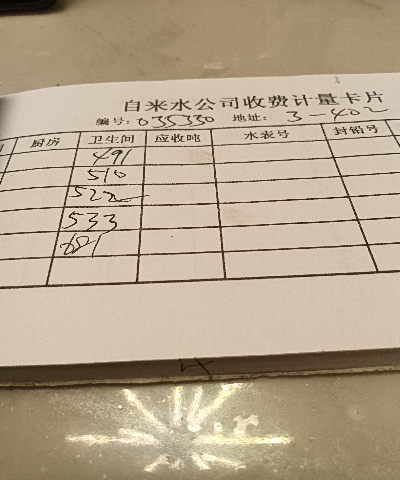 自来水公司收费计量卡片
编号: 035330 地址: 3-402
厨房 卫生间 应收吨 水表号 封铅号
491
510
522
533
681